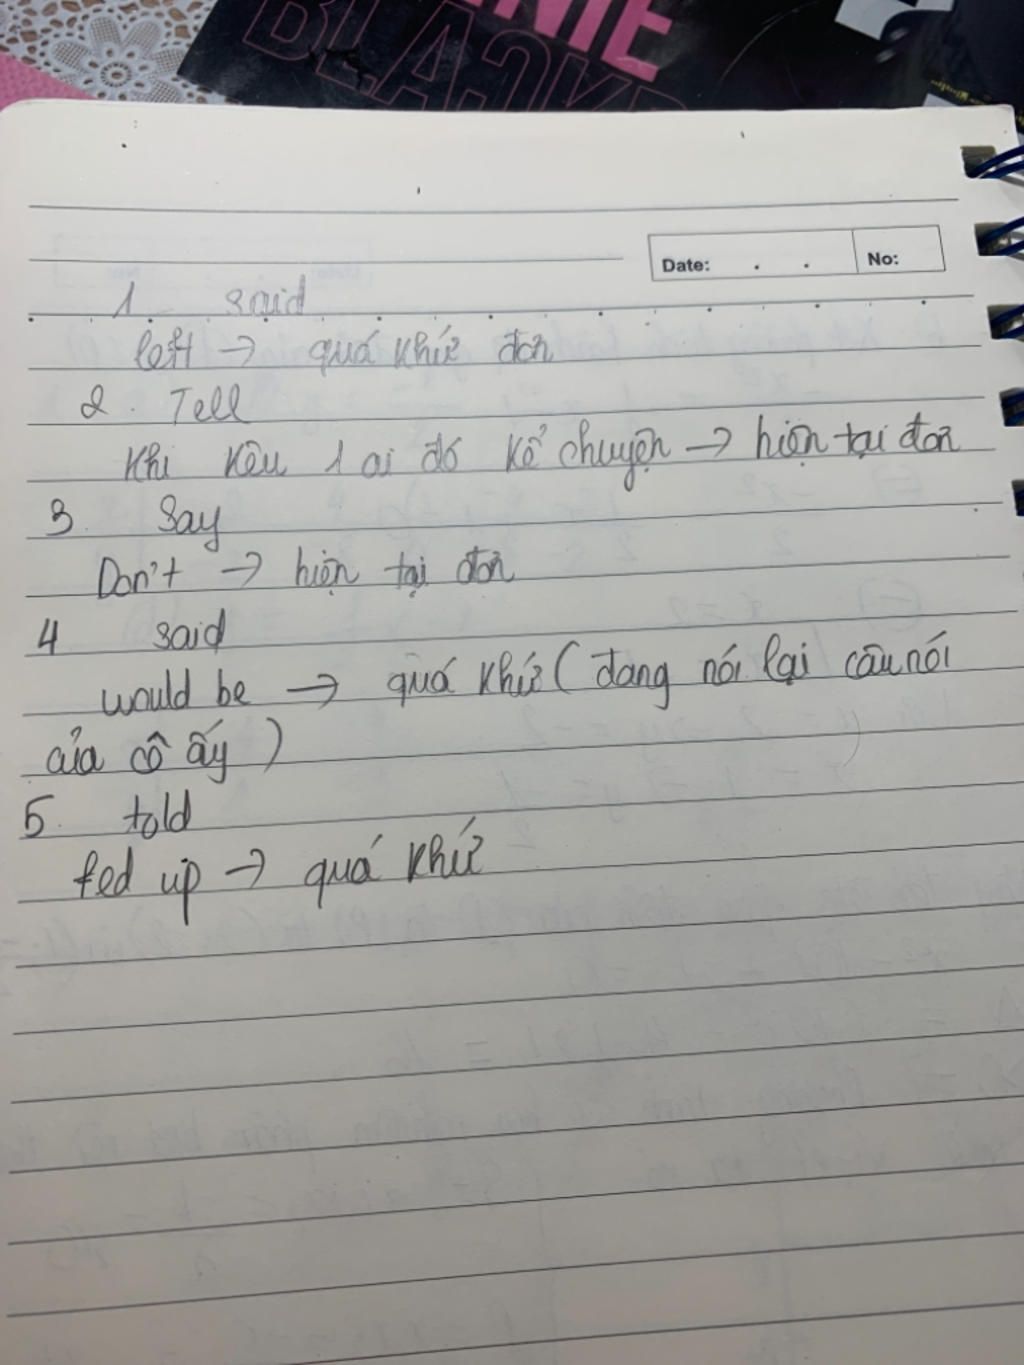 NIE
BLACKP
Date: . . No:
1. said
left → quá khứ đơn
2. Tell
Khi kêu 1 ai đó kể chuyện → hiện tại đơn
3. Say
Don't → hiện tại đơn
4 said
would be → quá khứ ( đang nói lại câu nói
của cô ấy )
5. told
fed up → quá khứ